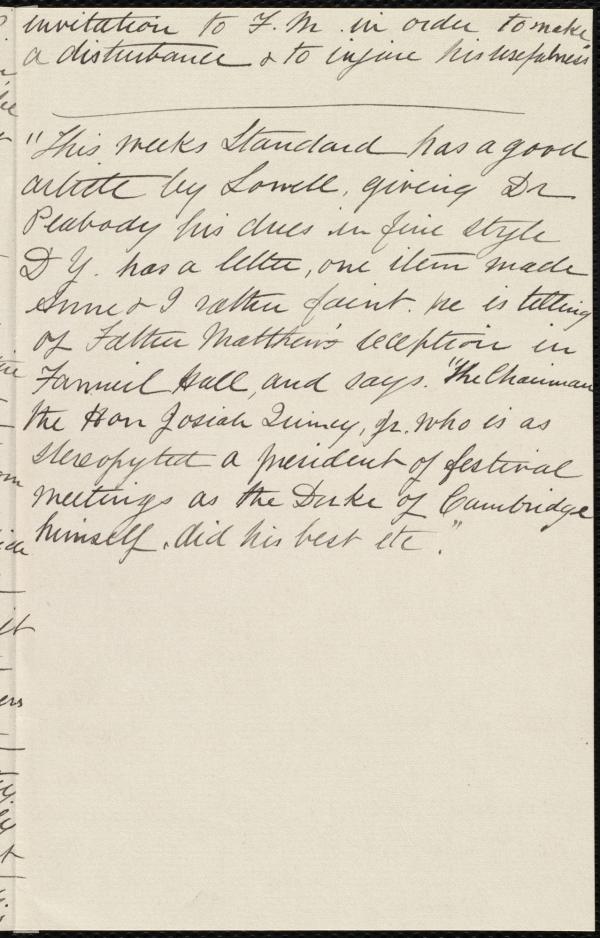 invitation to F. M. in order to make
a disturbance & to injure his usefulness
"This weeks Standard has a good
article by Lowell, giving Dr
Peabody his dues in fine style
D Y. has a letter, one item made
Anne & I rather faint. he is telling
of Father Matthew's reception in
Fanneuil Hall, and says. "The Chairman
the Hon Josiah Quincy, Jr. who is as
stereopyted a president of festival
meetings as the Duke of Cambridge
himself, did his best etc."